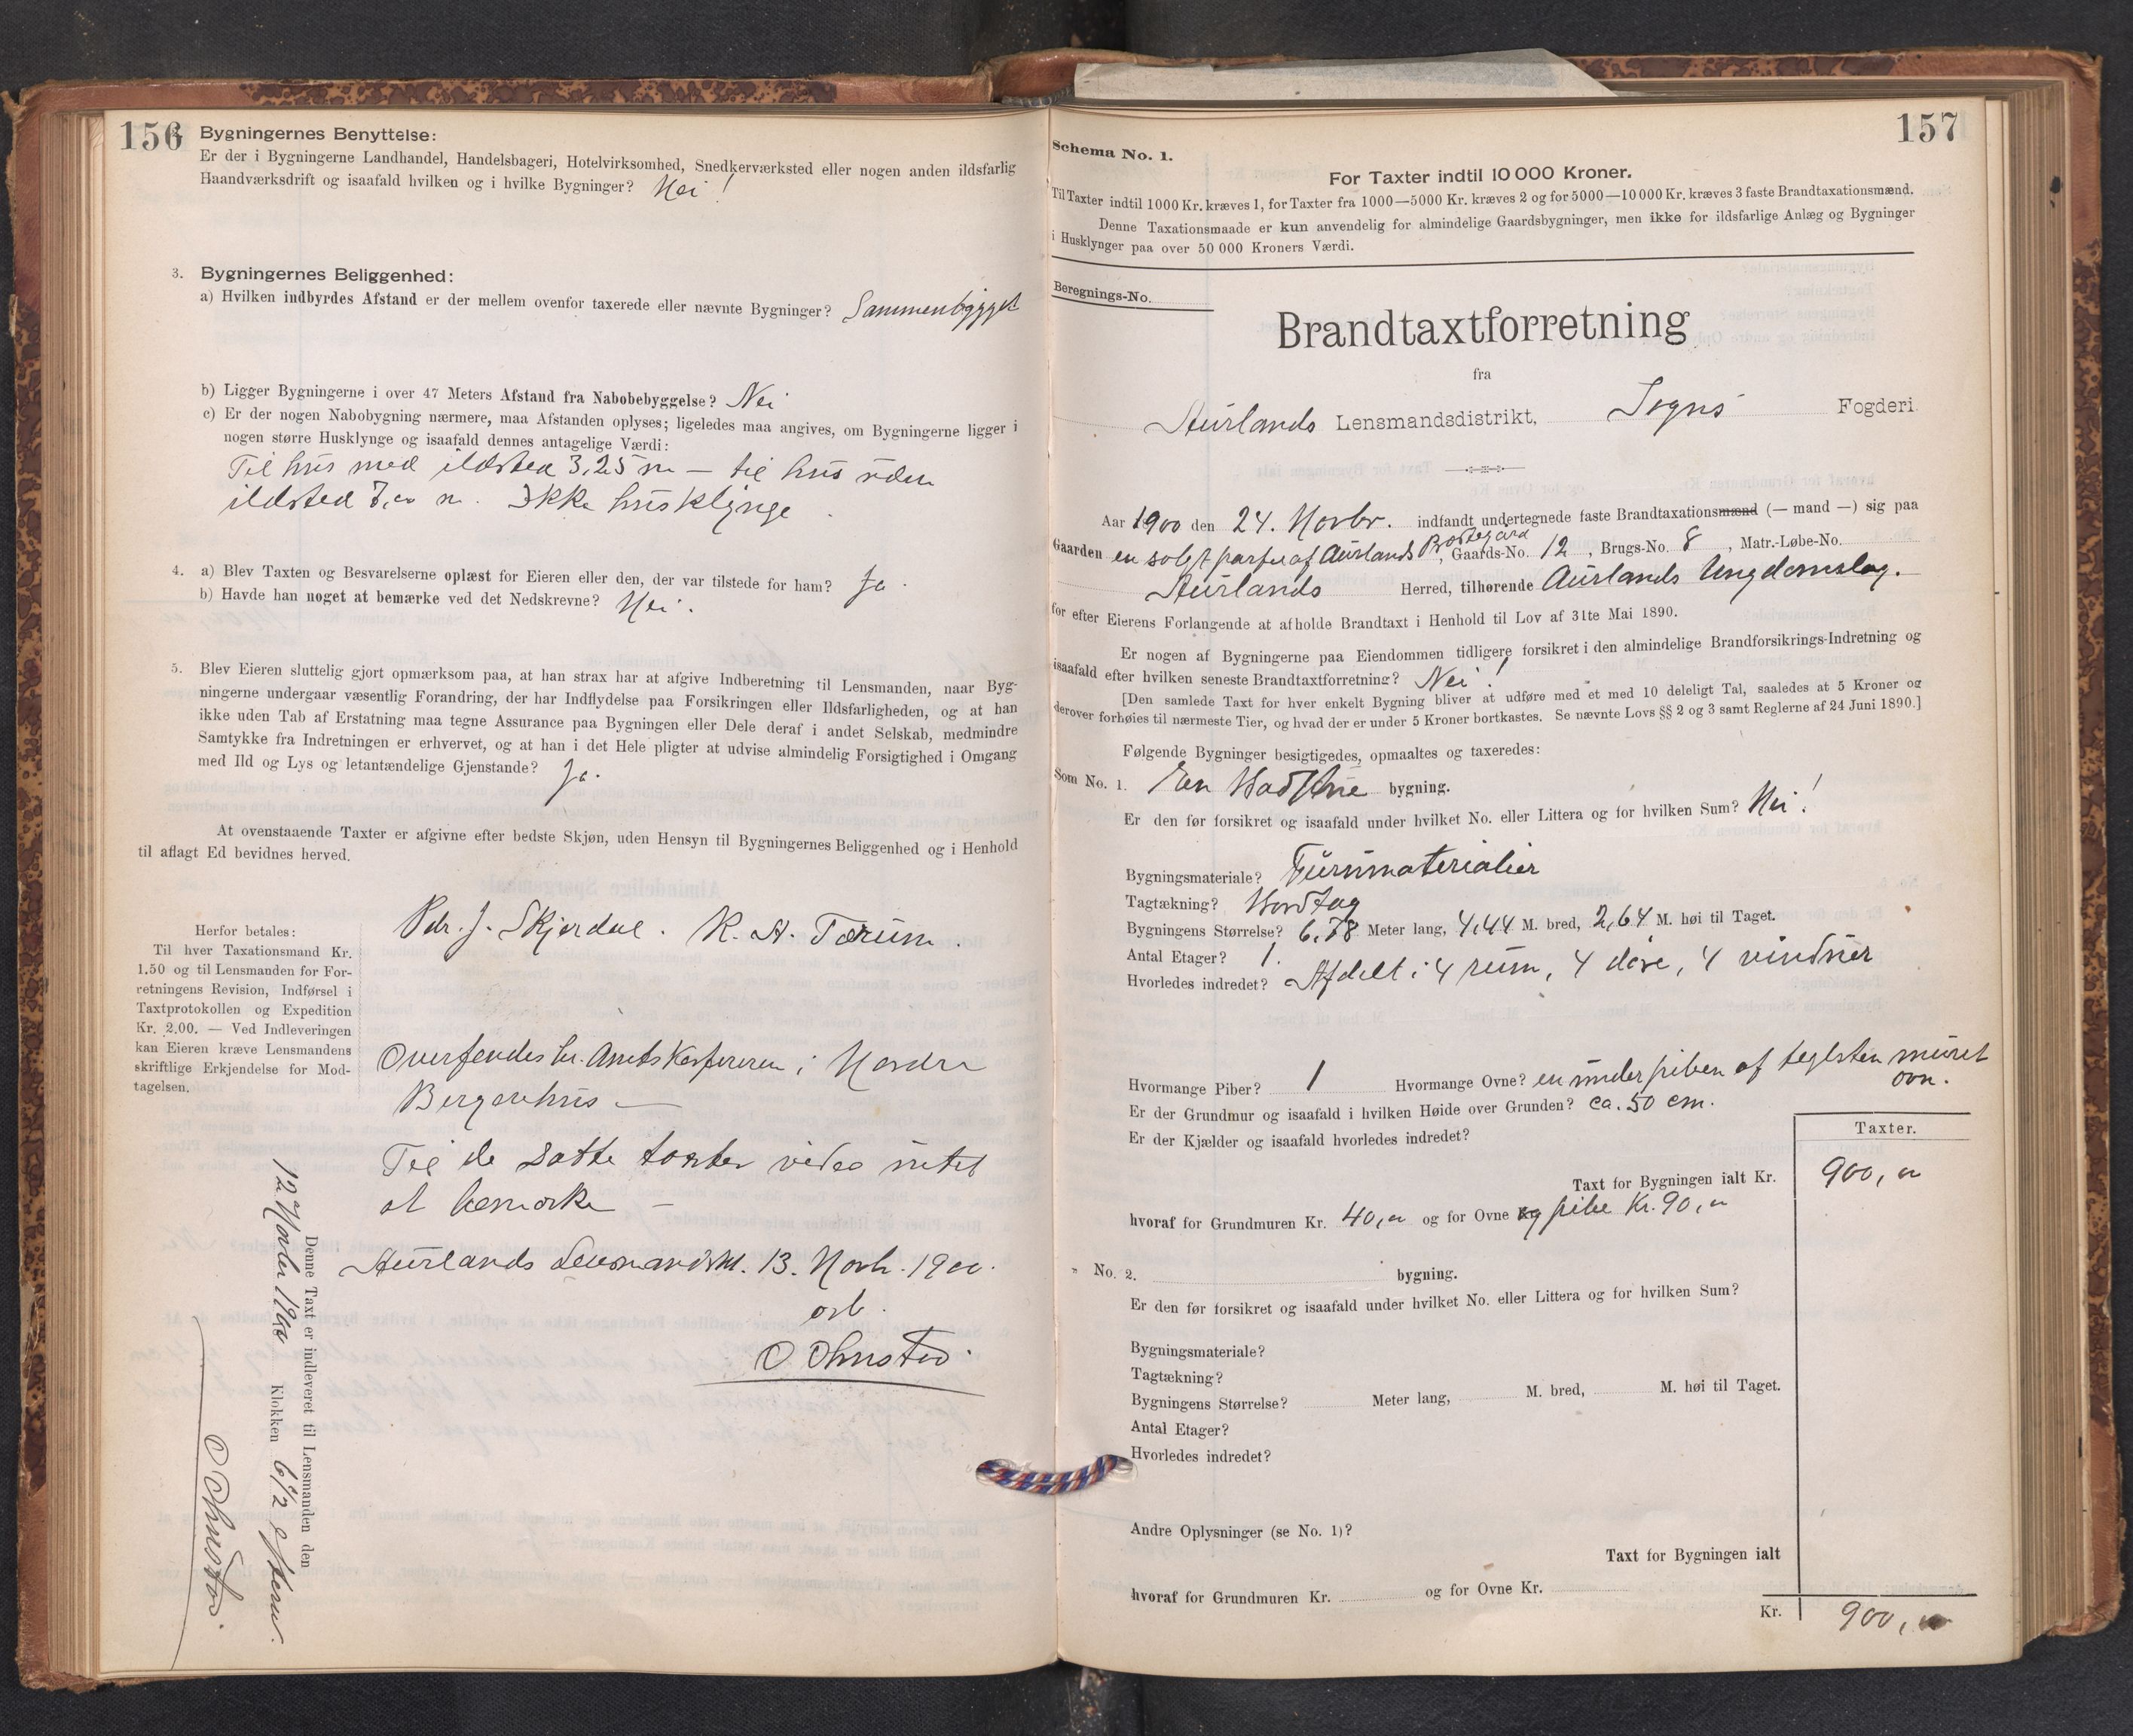 156
Bygningernes Benyttelse:
Er der i Bygningerne Landhandel, Handelsbageri, Hotelvirksomhed, Snedkerværksted eller nogen anden ildsfarlig
Haandværksdrift og isaafald hvilken og i hvilke Bygninger? Nei!
3. Bygningernes Beliggenhed:
a) Hvilken indbyrdes Afstand er der mellem ovenfor taxerede eller nævnte Bygninger? Sammenbygget
b) Ligger Bygningerne i over 47 Meters Afstand fra Nabobebyggelse? Nei
c) Er der nogen Nabobygning nærmere, maa Afstanden oplyses; ligeledes maa angives, om Bygningerne ligger i
nogen større Husklynge og isaafald dennes antagelige Værdi:
Til hus med ildsted 3,25 m — til hus uden
ildsted m. Ikke husklynge
4. a) Blev Taxten og Besvarelserne oplæst for Eieren eller den, der var tilstede for ham? Ja.
b) Havde han noget at bemærke ved det Nedskrevne? Nei.
5. Blev Eieren sluttelig gjort opmærksom paa, at han strax har at afgive Indberetning til Lensmanden, naar Byg-
ningerne undergaar væsentlig Forandring, der har Indflydelse paa Forsikringen eller Ildsfarligheden, og at han
ikke uden Tab af Erstatning maa tegne Assurance paa Bygningen eller Dele deraf i andet Selskab, medmindre
Samtykke fra Indretningen er erhvervet, og at han i det Hele pligter at udvise almindelig Forsigtighed i Omgang
med Ild og Lys og letantændelige Gjenstande? Ja.
At ovenstaaende Taxter er afgivne efter bedste Skjøn, uden Hensyn til Bygningernes Beliggenhed og i Henhold
til aflagt Ed bevidnes herved.
Pdr. J. Skjerdal. K. A. Tærum.
Herfor betales:
Til hver Taxationsmand Kr.
1.50 og til Lensmanden for For-
retningens Revision, Indførsel i
Taxtprotokollen og Expedition
Kr. 2.00. — Ved Indleveringen
kan Eieren kræve Lensmandens
skriftlige Erkjendelse for Mod-
tagelsen.
Oversendes hr. Amtskasereren i Nordre
Bergenhus —
Til de satte taxter vides intet
at bemærke —
Aurlands Lensmandskt. 13. Novb. 1900.
ærb.
O Ohnstad.
Denne Taxt er indleveret til Lensmanden den
12 Novbr 1900 Klokken 6 1/2 eftern.
O Ohnstad.
157
Schema No. 1.
For Taxter indtil 10 000 Kroner.
Til Taxter indtil 1000 Kr. kræves 1, for Taxter fra 1000—5000 Kr. kræves 2 og for 5000—10 000 Kr. kræves 3 faste Brandtaxationsmænd.
Denne Taxationsmaade er kun anvendelig for almindelige Gaardsbygninger, men ikke for ildsfarlige Anlæg og Bygninger
i Husklynger paa over 50 000 Kroners Værdi.
Beregnings-No.
Brandtaxtforretning
fra
Aurlands Lensmandsdistrikt, Sogns Fogderi
Aar 1900 den 24. Novbr. indfandt undertegnede faste Brandtaxationsmænd (— mand —) sig paa
Gaarden en solgt af Aurlands Prestegard, Gaards-No. 12, Brugs-No. 8, Matr.-Løbe-No.
Aurlands Herred, tilhørende Aurlands Ungdomslag.
for efter Eierens Forlangende at afholde Brandtaxt i Henhold til Lov af 31te Mai 1890.
Er nogen af Bygningerne paa Eiendommen tidligere forsikret i den almindelige Brandforsikrings-Indretning og
isaafald efter hvilken seneste Brandtaxtforretning? Nei!
[Den samlede Taxt for hver enkelt Bygning bliver at udføre med et med 10 deleligt Tal, saaledes at 5 Kroner og
derover forhøies til nærmeste Tier, og hvad der er under 5 Kroner bortkastes. Se nævnte Lovs §§ 2 og 3 samt Reglerne af 24 Juni 1890.]
Følgende Bygninger besigtigedes, opmaaltes og taxeredes:
Som No. 1. En bygning.
Er den før forsikret og isaafald under hvilket No. eller Littera og for hvilken Sum? Nei!
Bygningsmateriale? Furumaterialier
Tagtækning? Hordtag
Bygningens Størrelse? 6,78 Meter lang, 4,44 M. bred, 2,64 M. høi til Taget.
Antal Etager? 1.
Hvorledes indredet? Afdelt i 4 rum, 4 døre, 4 vinduer
Hvormange Piber? 1 Hvormange Ovne? en under piben af teglsten muret
ovn.
Er der Grundmur og isaafald i hvilken Høide over Grunden? ca. 50 cm.
Er der Kjælder og isaafald hvorledes indredet?
Taxter.
Taxt for Bygningen ialt Kr. 900,00
hvoraf for Grundmuren Kr. 40,00 og for Ovne og pibe Kr. 90,00
" No. 2. bygning.
Er den før forsikret og isaafald under hvilket No. eller Littera og for hvilken Sum?
Bygningsmateriale?
Tagtækning?
Bygningens Størrelse? Meter lang, M. bred, M. høi til Taget.
Antal Etager?
Hvorledes indredet?
Andre Oplysninger (se No. 1)?
Taxt for Bygningen ialt
hvoraf for Grundmuren Kr. og for Ovne Kr.
Kr. 900,00